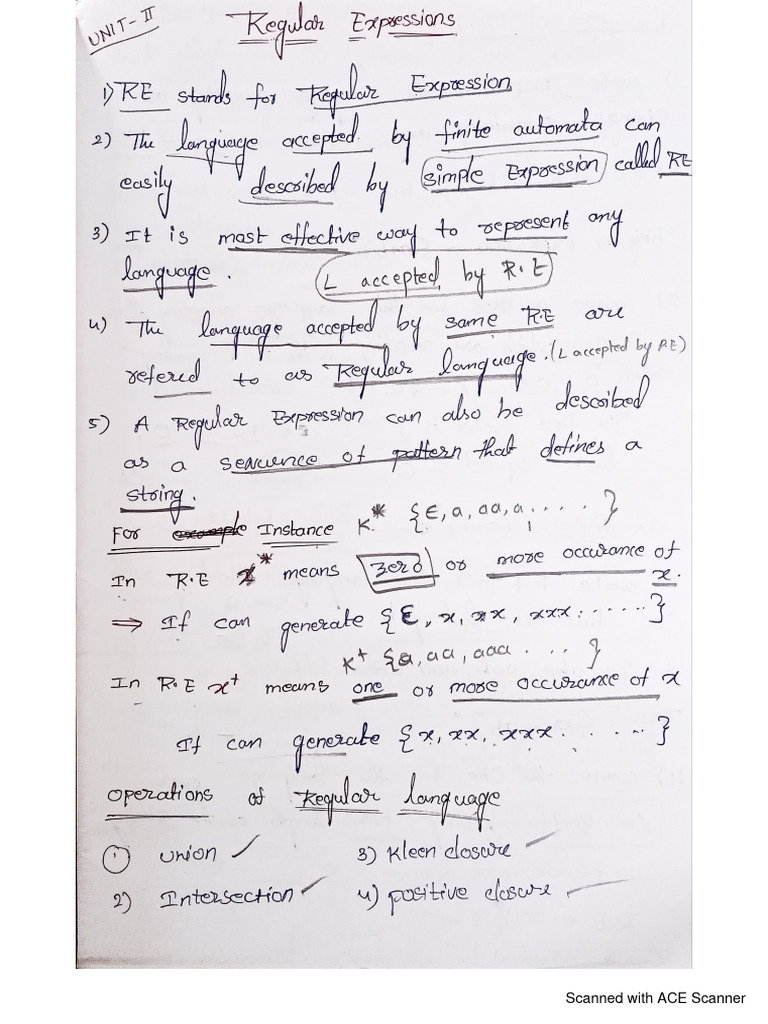 UNIT-II
Regular Expressions
1) RE stands for Regular Expression
2) The language accepted by finite automata can
easily described by simple Expression called RE
3) It is most effective way to represent any
language. L accepted by R.E
4) The language accepted by same R.E are
refered to as Regular language. (L accepted by RE)
5) A Regular Expression can also be described
as a sequence of pattern that defines a
string.
For example Instance K* {ε, a, aa, a.....}
In R.E x* means zero or more occurance of
x.
⇒ If can generate {ε, x, xx, xxx......}
K+ {a, aa, aaa....}
In R.E x+ means one or more occurance of x
If can generate {x, xx, xxx......}
Operations of Regular language
1) union ✓ 3) Kleen closure
2) Intersection 4) positive closure
Scanned with ACE Scanner